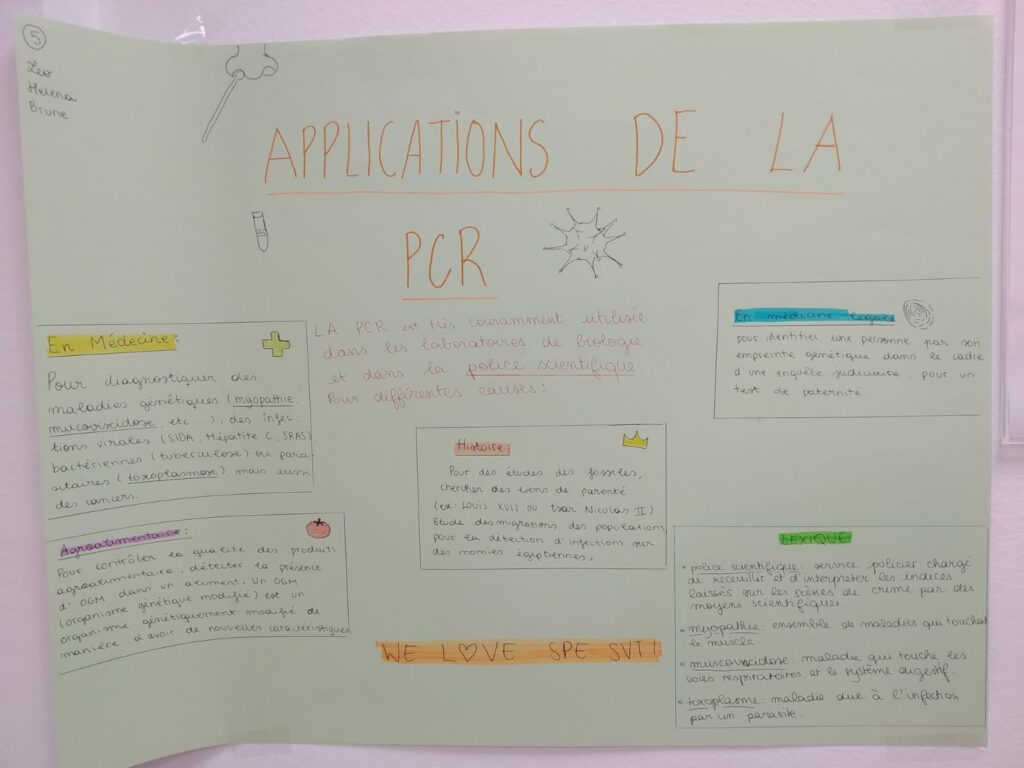 5
Leo
Helena
Brune
APPLICATIONS DE LA
PCR
LA PCR est très couramment utilisée
dans les laboratoires de biologie
et dans la police scientifique.
Pour différentes causes :
En Médecine :
Pour diagnostiquer des
maladies génétiques (myopathie,
mucoviscidose, etc...), des infec-
tions virales (SIDA, Hépatite C, SRAS)
bactériennes (tuberculose) ou para-
sitaires (toxoplasmose), mais aussi
des cancers.
En médicine légale
pour identifier une personne par son
empreinte génétique dans le cadre
d'une enquête judiciaire, pour un
test de paternité.
Histoire
Pour des études des fossiles,
chercher des liens de parenté
(ex: Louis XVII ou tsar Nicolas II)
Etude des migrations des populations,
pour la détection d'infections sur
des momies égyptiennes.
Agroalimentaire :
Pour contrôler la qualité des produits
agroalimentaire, détecter la présence
d'OGM dans un aliment. Un OGM
(organisme génétique modifié) est un
organisme génétiquement modifié de
manière à avoir de nouvelles caractéristiques
LEXIQUE
• police scientifique : service policier chargé
de receuillir et d'interpreter les indices
laissés sur les scènes de crime par des
moyens scientifiques.
• myopathie : ensemble de maladies qui touchent
le muscle
• muscoviscidose : maladie qui touche les
voies respiratoires et le système digestif.
• toxoplasme : maladie due à l'infection
par un parasite.
WE L♡VE SPE SVT!